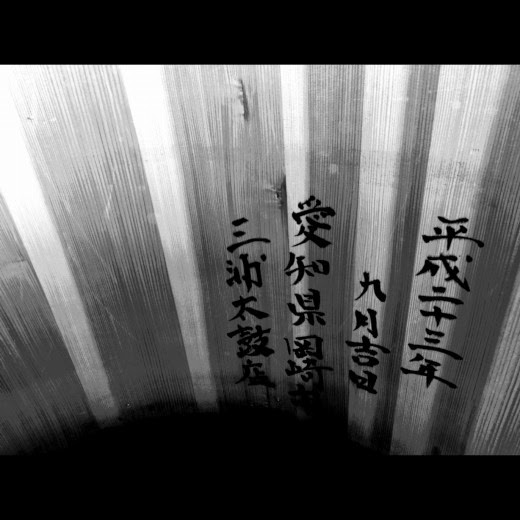 平成二十三年
九月吉日
愛知県岡崎市
三浦太鼓店